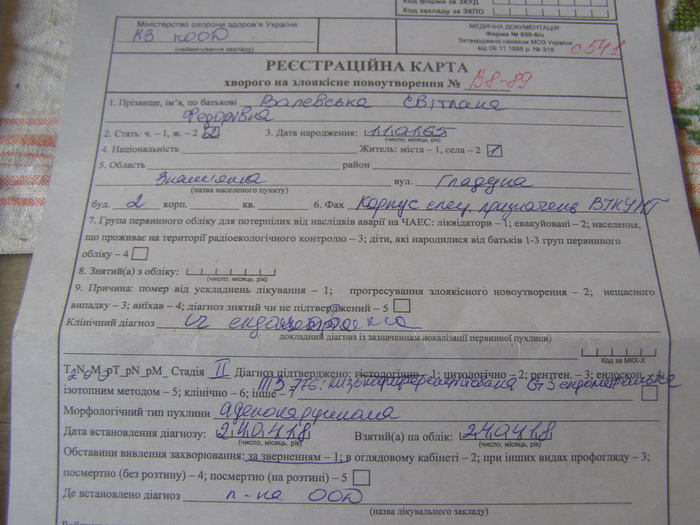 Код форми за ЗКУД
Код закладу за ЗКПО
Міністерство охорони здоров'я України
КЗ КООД
(найменування закладу)
МЕДИЧНА ДОКУМЕНТАЦІЯ
Форма № 030-6/о
Затверджено наказом МОЗ України
від 09.11.1998 р. № 318
с541
РЕЄСТРАЦІЙНА КАРТА
хворого на злоякісне новоутворення № В8-89
1. Прізвище, ім'я, по батькові Валевська Світлана
Федорівна
2. Стать: ч. – 1, ж. – 2 3. Дата народження: 110165
(число, місяць, рік)
4. Національність Житель: міста – 1, села – 2 1
5. Область район
Знам'янка вул. Гладуна
(назва населеного пункту)
буд. 2 корп. кв. 6. Фах Корпус спец. призначень
7. Група первинного обліку для потерпілих від наслідків аварії на ЧАЕС: ліквідатори – 1; евакуйовані – 2; населення,
що проживає на території радіоекологічного контролю – 3; діти, які народилися від батьків 1-3 груп первинного
обліку – 4
8. Знятий(а) з обліку:
(число, місяць, рік)
9. Причина: помер від ускладнень лікування – 1; прогресування злоякісного новоутворення – 2; нещасного
випадку – 3; виїхав – 4; діагноз знятий чи не підтверджений – 5
Клінічний діагноз Cr ендометрія
докладний діагноз із зазначенням локалізації первинної пухлини)
Код за МКХ-X
T2N0M0 pT_pN_pM_ Стадія II Діагноз підтверджено: гістологічно – 1; цитологічно – 2; рентген. – 3; ендоскоп.
ізотопним методом – 5; клінічно – 6; інше – 7
ПГЗ 776: низькодиференційована
Морфологічний тип пухлини аденокарцинома
Дата встановлення діагнозу: 240418 Взятий(а) на облік: 240418
(число, місяць, рік) (число, місяць, рік)
Обставини виявлення захворювання: за зверненням – 1; в оглядовому кабінеті – 2; при інших видах профогляду – 3;
посмертно (без розтину) – 4; посмертно (на розтині) – 5
Де встановлено діагноз п-ка ООД
(назва лікувального закладу)